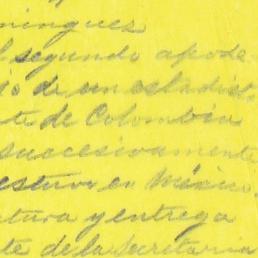 mingues
l segundo apode-
io de un estadist
te de Colombia
sucesivamente
estuvo en México.
ctura y entrega
te de la Secretaria